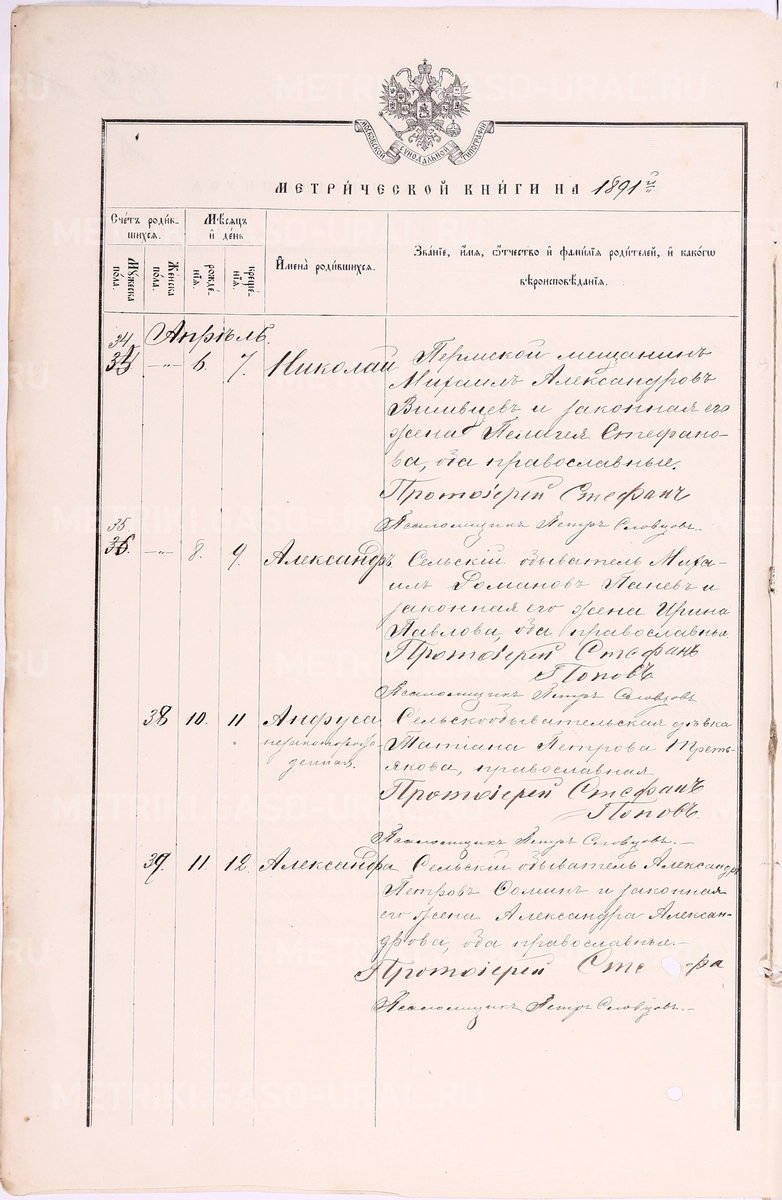 МОСКОВСКОЙ СУНОДАЛЬНОЙ ТИПОГРАФІИ
МЕТРИ́ЧЕСКОЙ КНИ́ГИ НА 1891 й
Сче́тъ роди́в-
шихся.
Мѣ́сяцъ
и҆ де́нь
Му́жеска
по́ла.
Же́нска
по́ла.
рожде́-
нїѧ.
креще́-
нїѧ.
И҆мена̀ роди́вшихся.
Зва́нїе, и҆́мѧ, ѻ҆́тчество и҆ фами́лїѧ роди́телей, и҆ како́гѡ
вѣроисповѣ́данїѧ.
Апрѣль.
34
35 —„— 6. 7. Николай Пермской мещанинъ
Михаилъ Александровъ
и законная его
жена Пелагея Стефано-
ва, оба православные.
Протоіерей Стефанъ
Псаломщикъ Петръ Словцовъ.
35.
36. —„— 8. 9. Александръ Сельскій обыватель Миха-
илъ Романовъ Паневъ и
законная его жена Ирина
Павлова, оба православные
Протоіерей Стефанъ
Поповъ
Псаломщикъ Петръ Словцовъ
38 10. 11 Анфуса Сельскообывательская дѣвка
незаконорожд-
денная.
Татіана Петрова Треть-
якова, православная
Протоіерей Стефанъ
Поповъ
Псаломщикъ Петръ Словцовъ.—
39. 11. 12. Александра Сельскій обыватель Александръ
Петровъ Сминъ и законная
его жена Александра Алексан-
дрова, оба православные.—
Протоіерей Сте фа
Псаломщикъ Петръ Словцовъ.—
METRIKI.GASO-URAL.RU